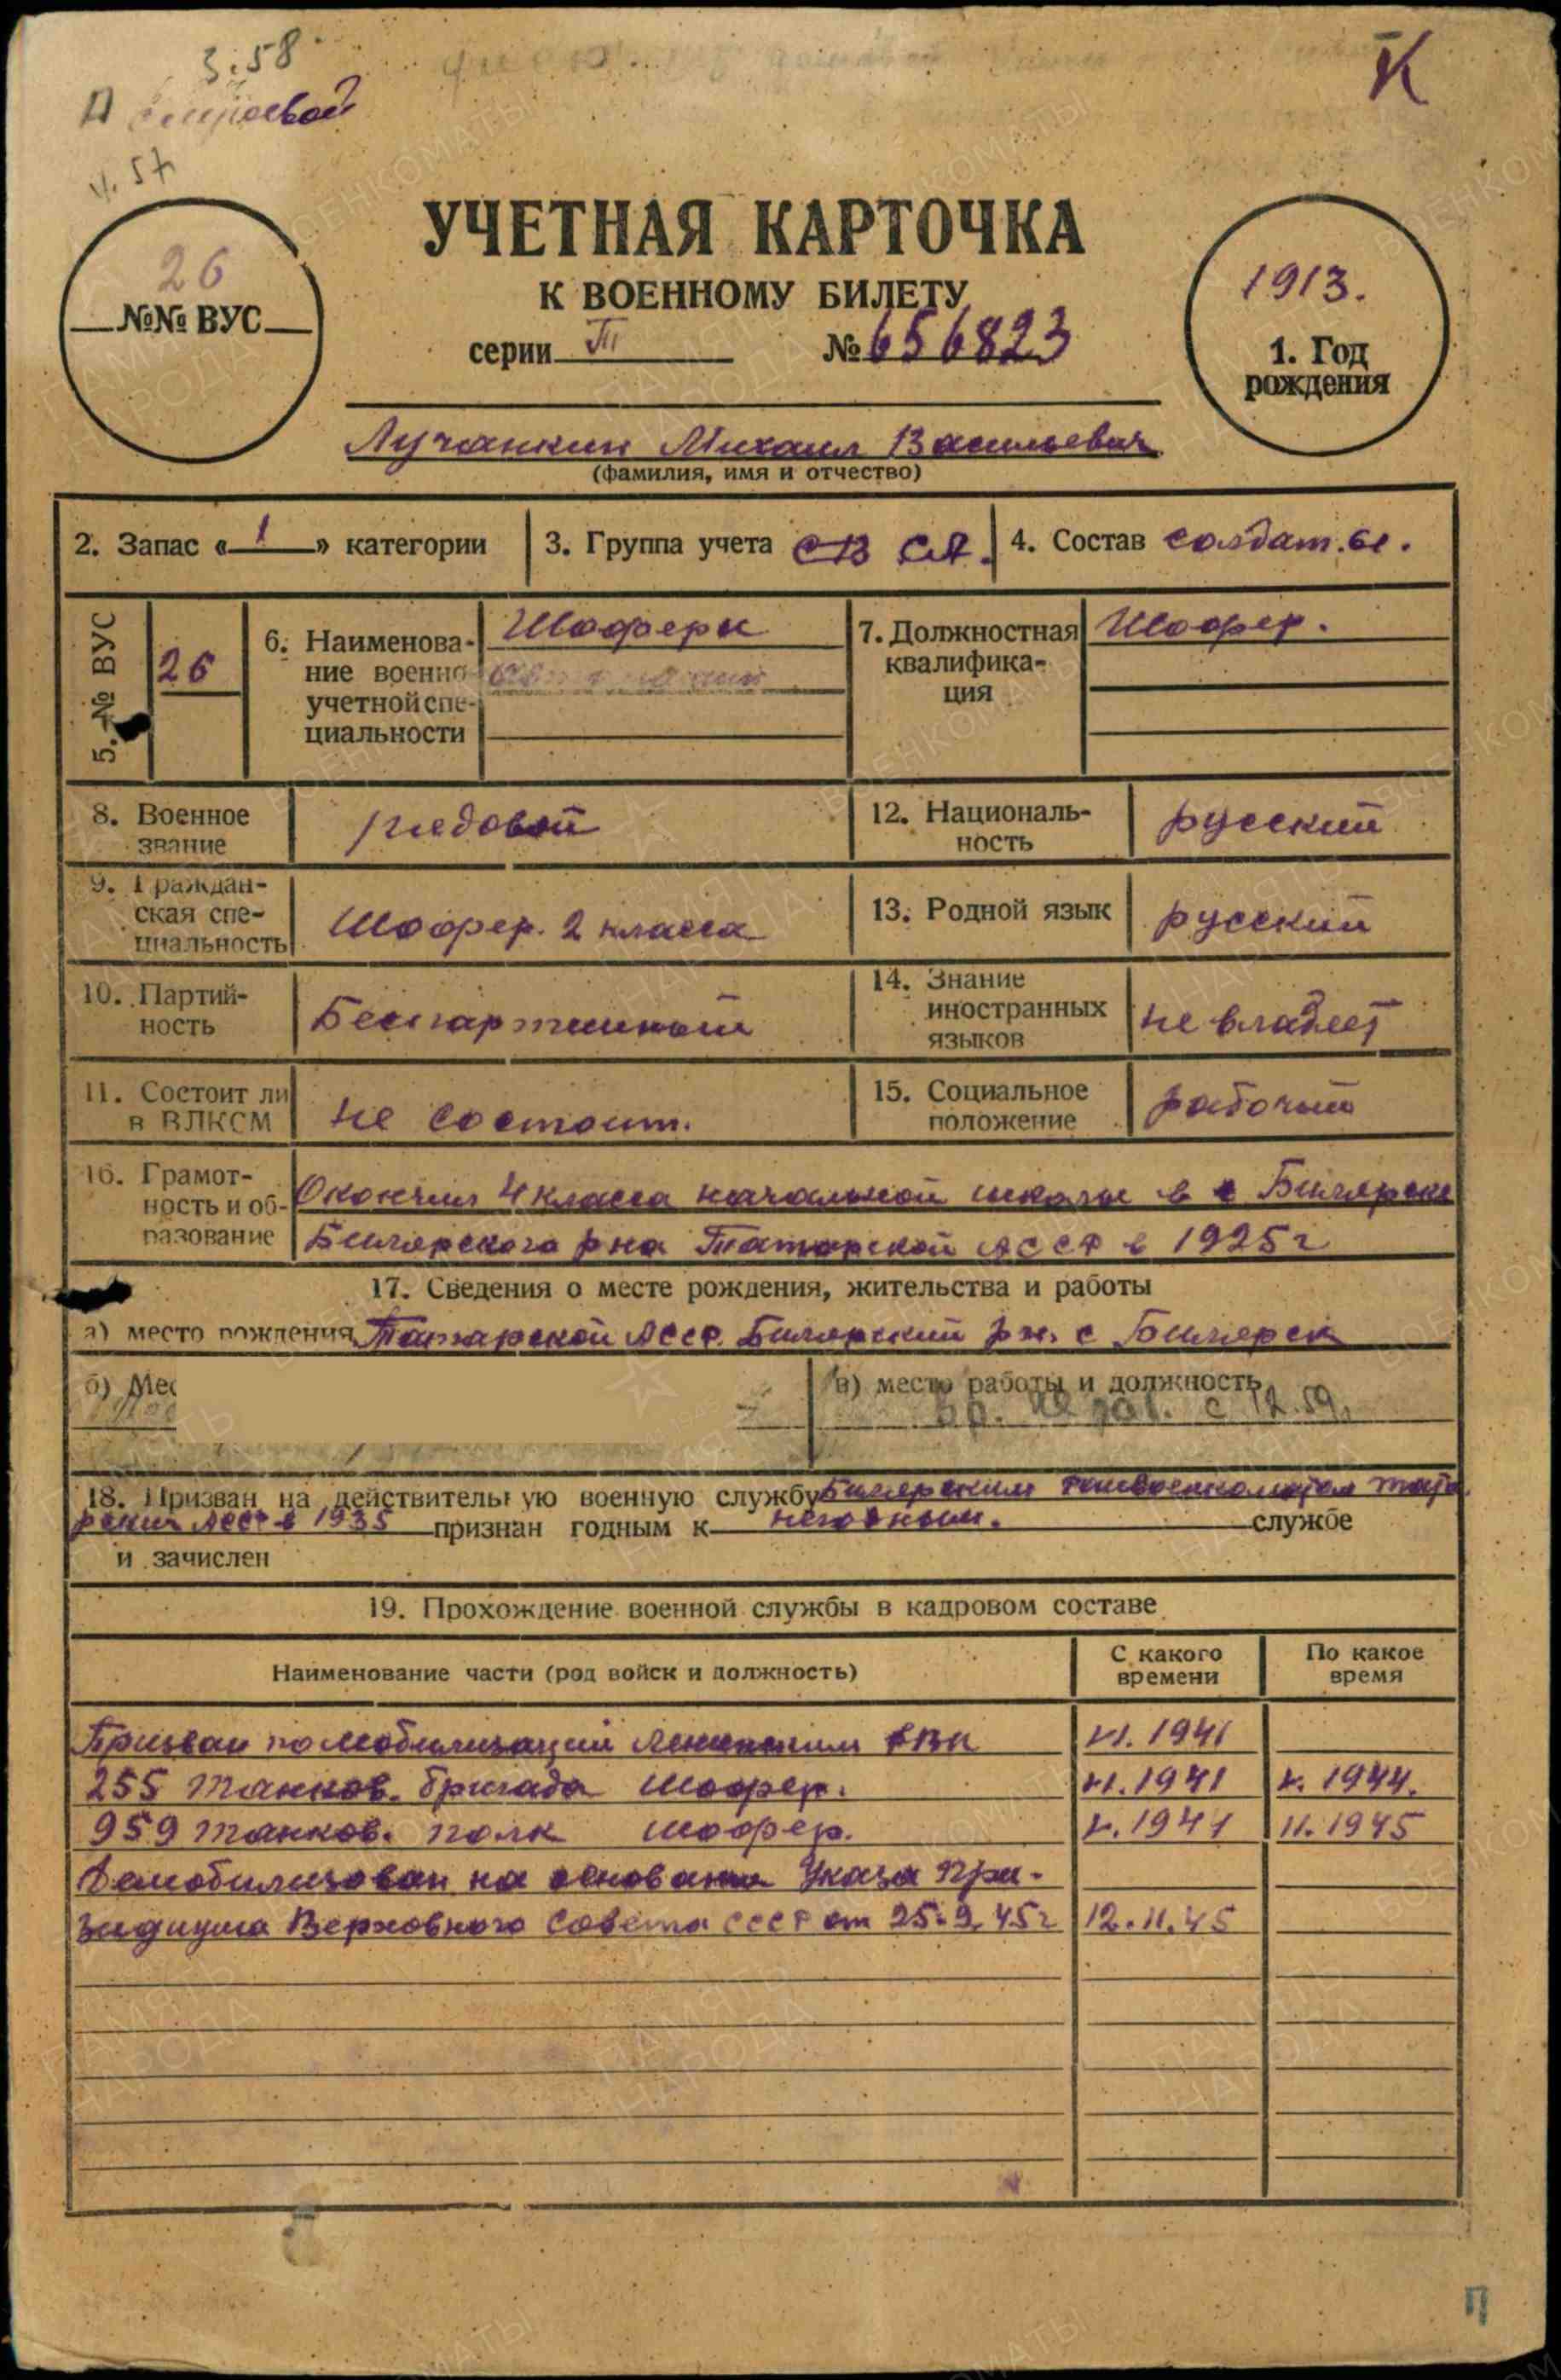 3.58
К
строевой
26
№№ ВУС
УЧЕТНАЯ КАРТОЧКА
К ВОЕННОМУ БИЛЕТУ
серии ТП № 656823
1913.
1. Год
рождения
Лучанкин Михаил Васильевич
(фамилия, имя и отчество)
2. Запас «1» категории
3. Группа учета СВ СА.
4. Состав солдат.
5. № ВУС
26
6. Наименова-
ние военно
учетной спе-
циальности
Шоферы
7. Должностная
квалифика-
ция
Шофер.
8. Военное
звание
рядовой
12. Националь-
ность
русский
9. Граждан-
ская спе-
циальность
Шофер. 2 класса
13. Родной язык
русский
10. Партий-
ность
Беспартийный
14. Знание
иностранных
языков
не владеет
11. Состоит ли
в ВЛКСМ
не состоит.
15. Социальное
положение
рабочий
16. Грамот-
ность и об-
разование
Окончил 4 класса начальной школы в с Билярске
Билярского р на Татарской АССР в 1925 г
17. Сведения о месте рождения, жительства и работы
а) место рождения Татарской АССР. Билярский рн. с Билярск
б) Мес
в) место работы и должность
с 12.59.
18. Призван на действительную военную службу Билярским райвоенкоматом Тата
рской АССР в 1935 признан годным к негодным. службе
и зачислен
19. Прохождение военной службы в кадровом составе
Наименование части (род войск и должность)
С какого
времени
По какое
время
Призван по мобилизации Ленинским РВК VI. 1941
255 танков. бригада шофер. VI. 1941 V. 1944.
959 танков. полк шофер. V. 1944 11. 1945
Демобилизован на основании Указа През-
зидиума Верховного Совета СССР от 25.9.45 г 12.11.45
П